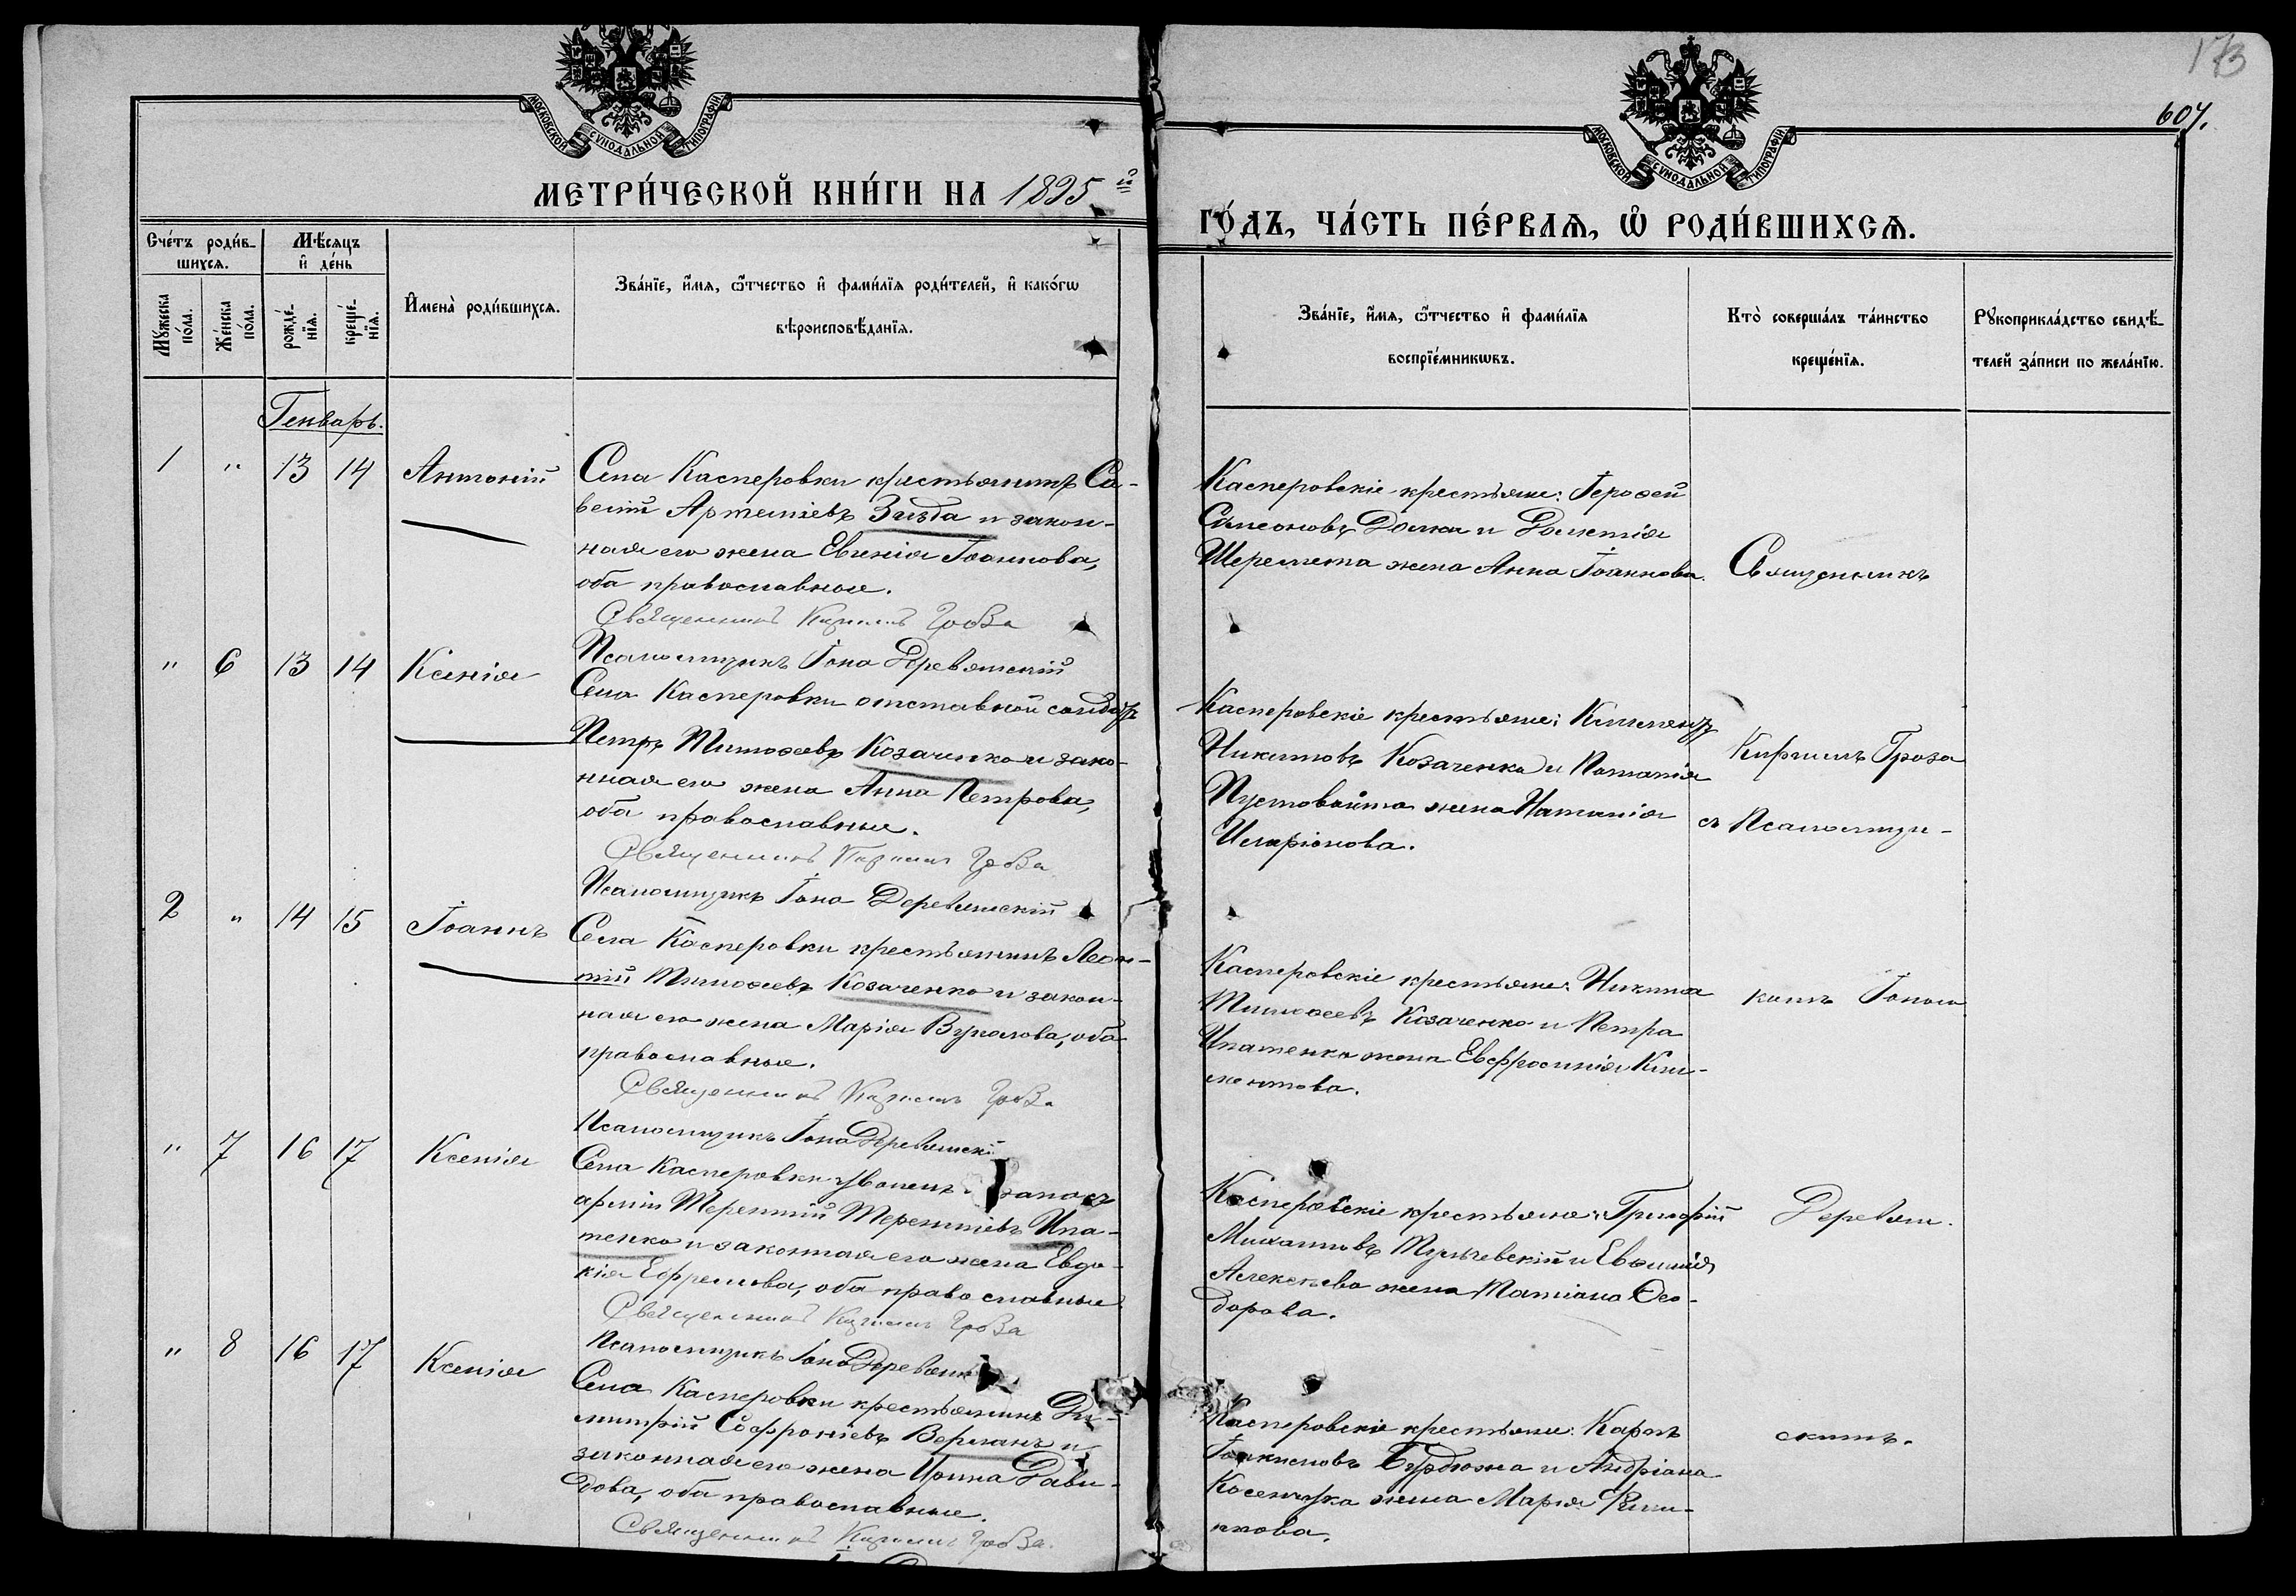 173
607.
МОСКОВСКОЙ СѴНОДАЛЬНОЙ ТИПОГРАФІИ
МОСКОВСКОЙ СѴНОДАЛЬНОЙ ТИПОГРАФІИ
МЕТРИ́ЧЕСКОЙ КНИ́ГИ НА 1895й
ГО́ДЪ, ЧА́СТЬ ПЕ́РВАѦ, Ѡ҆ РОДИ́ВШИХСѦ.
Сче́тъ роди́в-
шихсѧ.
Мѣ́сѧцъ
и҆ де́нь
Мꙋ́жеска
по́ла.
Же́нска
по́ла.
рожде́-
нїѧ.
креще́-
нїѧ.
И҆мена̀ роди́вшихсѧ.
Зва́нїе, и҆́мѧ, ѻ҆́тчество и҆ фами́лїѧ роди́телей, и҆ како́гѡ
вѣроисповѣ́данїѧ.
Зва́нїе, и҆́мѧ, ѻ҆́тчество и҆ фами́лїѧ
воспрїе́мникѡвъ.
Кто̀ соверша́лъ та́инство
креще́нїѧ.
Рꙋкоприкла́дство свидѣ́-
телей за́писи по жела́нїю.
Генварь.
1 " 13 14 Антоній
Села Касперовки крестьянинъ Са-
велій Артеміевъ Зизда и закон-
ная его жена Евгенія Іоаннова,
оба православные.
Священникъ Кириллъ Гроза
Псаломщикъ Іона Деревянскій
Касперовскіе крестьяне: Іерофей
Симеоновъ Долка и Дометія
Шеремета жена Анна Іоаннова.
Священникъ
" 6 13 14 Ксенія
Села Касперовки отставной солдатъ
Петръ Тимофеевъ Козаченко и зако-
нная его жена Анна Петрова,
оба православные.
Священникъ Кириллъ Гроза
Псаломщикъ Іона Деревянскій
Касперовскіе крестьяне: Климентъ
Никитовъ Козаченко и Потапія
Пустовойта жена Наталія
Иларіонова.
Кириллъ Гроза
съ Псаломщи-
2 " 14 15 Іоаннъ
Села Касперовки крестьянинъ Леон-
тій Тимофеевъ Козаченко и закон-
ная его жена Марія Вуколова, оба
православные.
Священникъ Кириллъ Гроза
Псаломщикъ Іона Деревянскій
Касперовскіе крестьяне: Никита
Тимофеевъ Козаченко и Петра
Ипатенка жена Евфросинія Кли-
ментова.
комъ Іоною
" 7 16 17 Ксенія
Села Касперовки уволен. запасъ
арміи Терентій Терентіевъ Ипа-
тенко и законная его жена Евдо-
кія Ефремова, оба православные
Священникъ Кириллъ Гроза
Псаломщикъ Іона Деревянск
Касперовскіе крестьяне: Григорій
Михаиловъ Тульчевскій и Евфимія
Алексѣева жена Татіана Ѳео-
дорова.
Деревян-
" 8 16 17 Ксенія
Села Касперовки крестьянинъ Ди-
митрій Софроніевъ Верланъ и
законная его жена Ирина Дави-
дова, оба православные.
Священникъ Кириллъ Гроза.
Касперовскіе крестьяне: Карпъ
Іоакимовъ Бурдюжа и Андріана
Косенчука жена Марія Фили-
ппова.
скимъ.